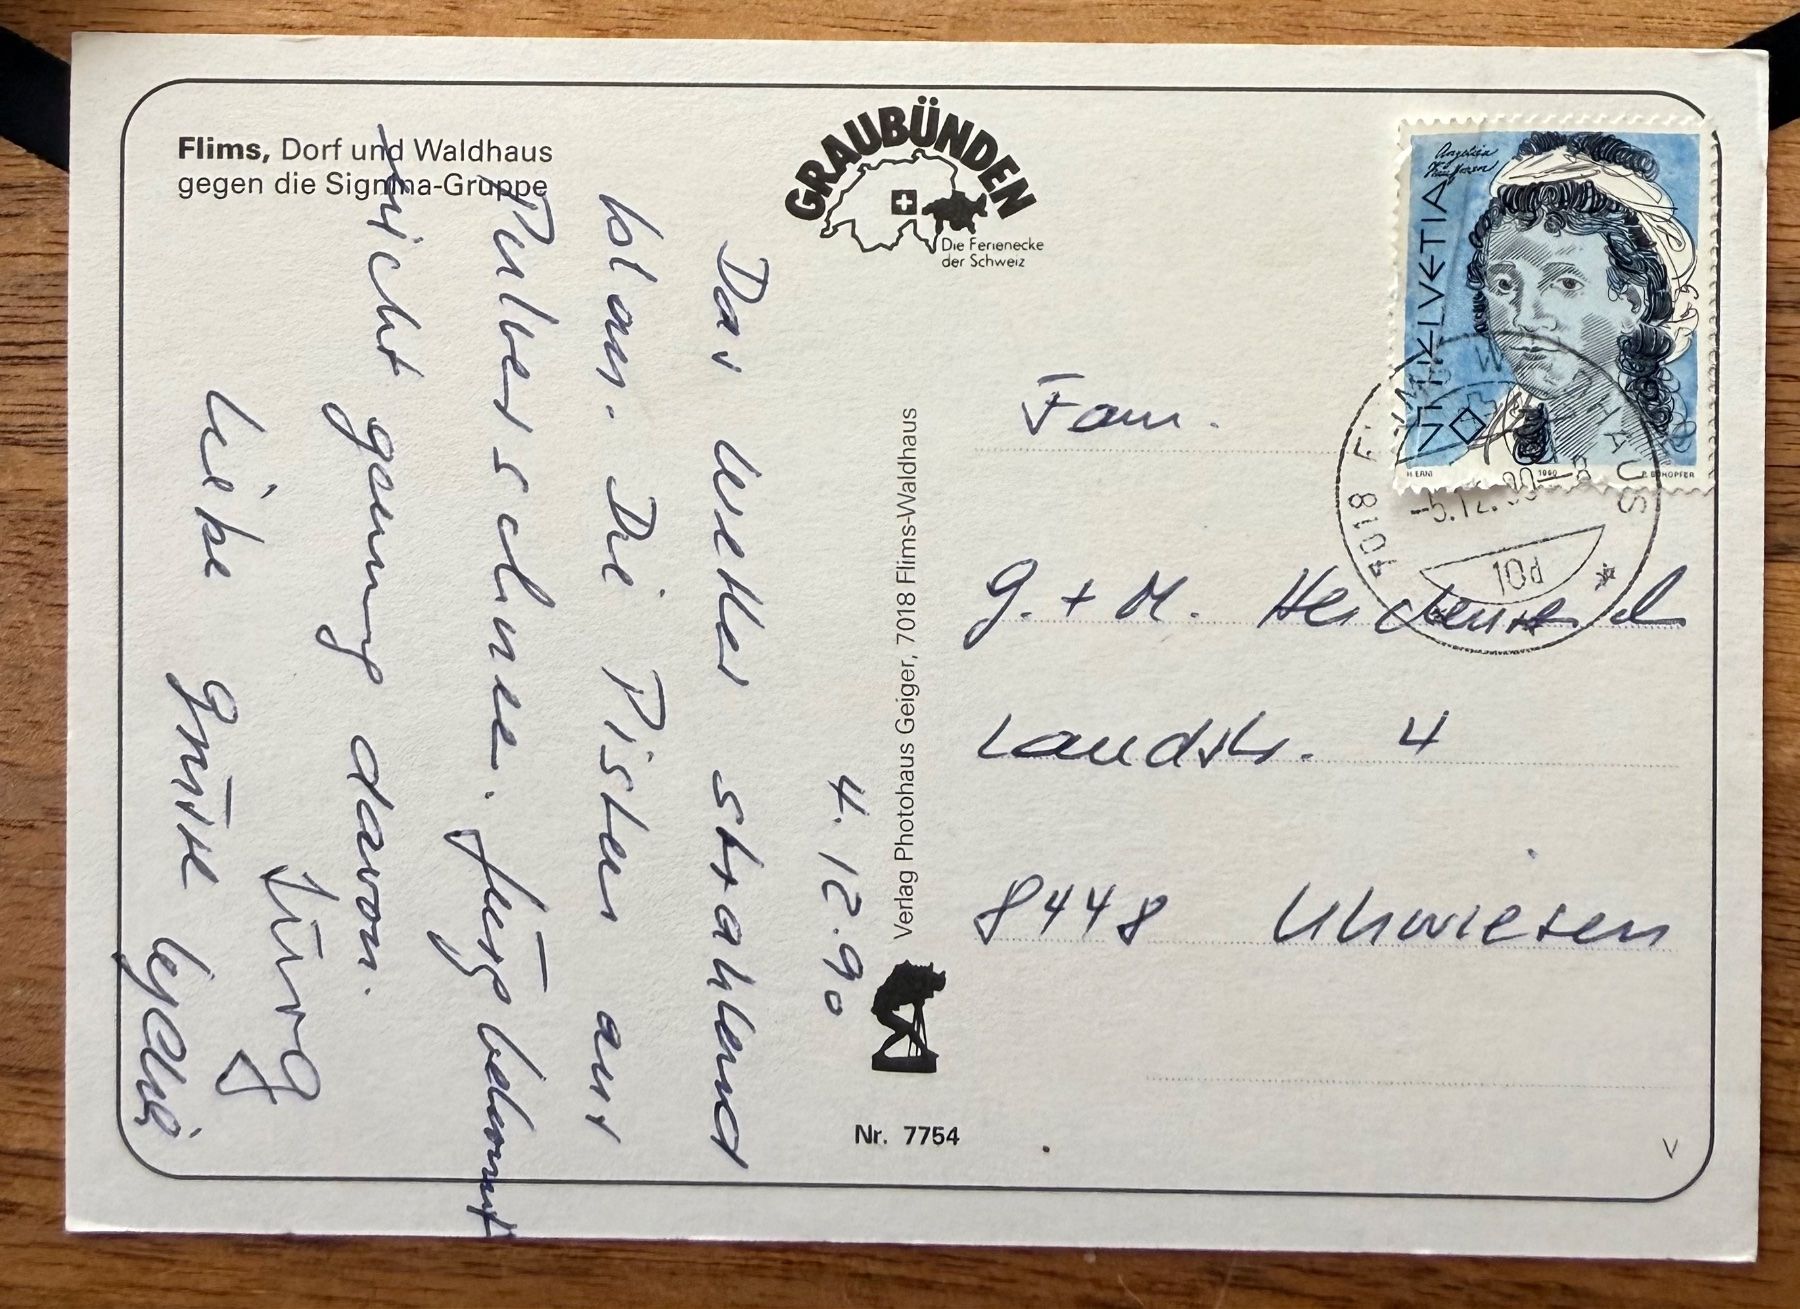 Flims, Dorf und Waldhaus
gegen die Signina-Gruppe
GRAUBÜNDEN
Die Ferienecke
der Schweiz
4.12.90
Das Wetter strahlend
blau. Die Pisten aus
Pulverschnee. Jürg bekommt
nicht genug davon.
Liebe Grüsse
Jürg
Verlag Photohaus Geiger, 7018 Flims-Waldhaus
Nr. 7754
Angelica
HELVETIA
H. ERNI 1990 P. SCHOPFER
7018 FLIMS WALDHAUS
-5.12.90-8
10d
Fam.
G. + M.
Landstr. 4
8448 Uhwiesen
V